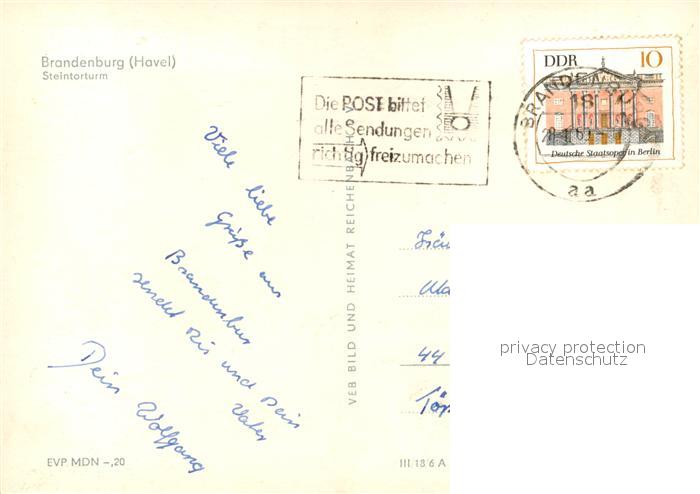 Brandenburg (Havel)
Steintorturm
Die POST bittet
alle Sendungen
richtig freizumachen
DDR 10
Deutsche Staatsoper in Berlin
BRANDENBURG
18
aa
Viele liebe
Grüße aus
Brandenburg
sendet Dir und Dein
Vater
Dein Wolfgang
VEB BILD UND HEIMAT REICHENBACH
44
privacy protection
Datenschutz
EVP MDN –,20
III/18/6 A